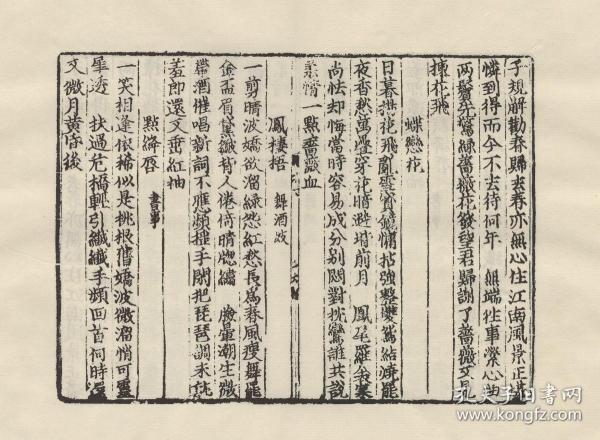 子規解勸春歸去春亦無心住江南風景正堪
憐到得而今不去待何年　無端往事縈心曲
兩鬢先驚綠薔薇花發望君歸謝了薔薇又見
楝花飛
蝶戀花
日暮楊花飛亂雪寶鏡慵拈強整雙鴛結燒罷
夜香愁萬疊穿花暗避堦前月　鳳尾羅衾寒
尚怯却悔當時容易成分別悶對枕鸞誰共說
柔情一點薔薇血
鳳棲梧　舞酒妓
一剪晴波嬌欲溜綠怨紅愁長爲春風瘦舞罷
金盃眉黛皺背人倦倚晴牕繡　臉暈潮生微
帶酒催唱新詞不應頻搖手閑把琵琶調未就
羞即還又垂紅袖
點絳唇　書事
一笑相逢依稀似是桃根舊嬌波微溜悄可靈
犀透　扶過危橋輕引纖纖手頻回首何時還
又微月黃昏後
孔夫子旧书网
www.kongfz.com